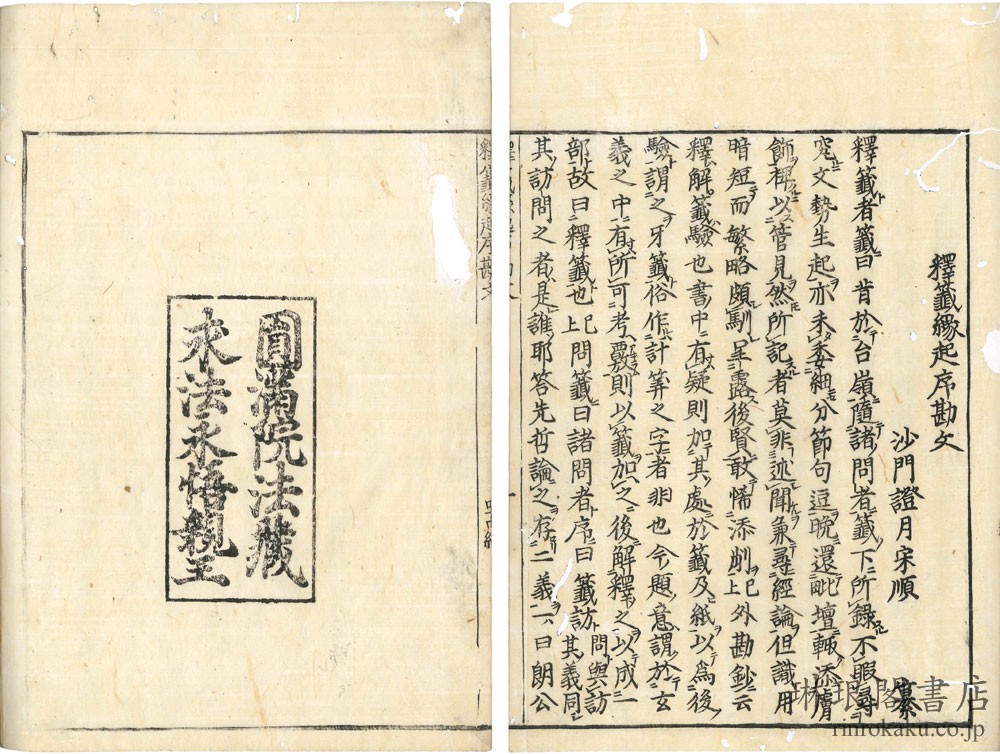 釋籤縁起序勘文
沙門證月宋順 纂
釋籤者籤曰昔於台嶺隨諸問者籤下所録不暇尋
究文勢生起亦未委細分節句逗晩還毗壇輙添膚
飾裨以管見然所記者莫非述聞兼尋經論但識用
暗短而繁略頗馴呈露後賢敢悕添削已上外勘鈔云
釋解籤驗也書中有疑則加其處於籤及紙以為後
驗謂之牙籤俗作計筭之字者非也今題意謂於玄
義之中有所可考覈則以籤加之後解釋之以成一
部故曰釋籤也已上問籤曰諸問者序曰籤訪問與訪其義同
其訪問之者是誰耶答先哲論之存二義一曰朗公
釋籤縁起序勘文
一
圓滿院法藏
永悟親王
琳琅閣書店
rinrokaku.co.jp